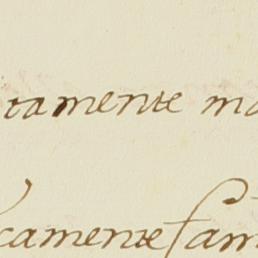 tamente ma
camente sam